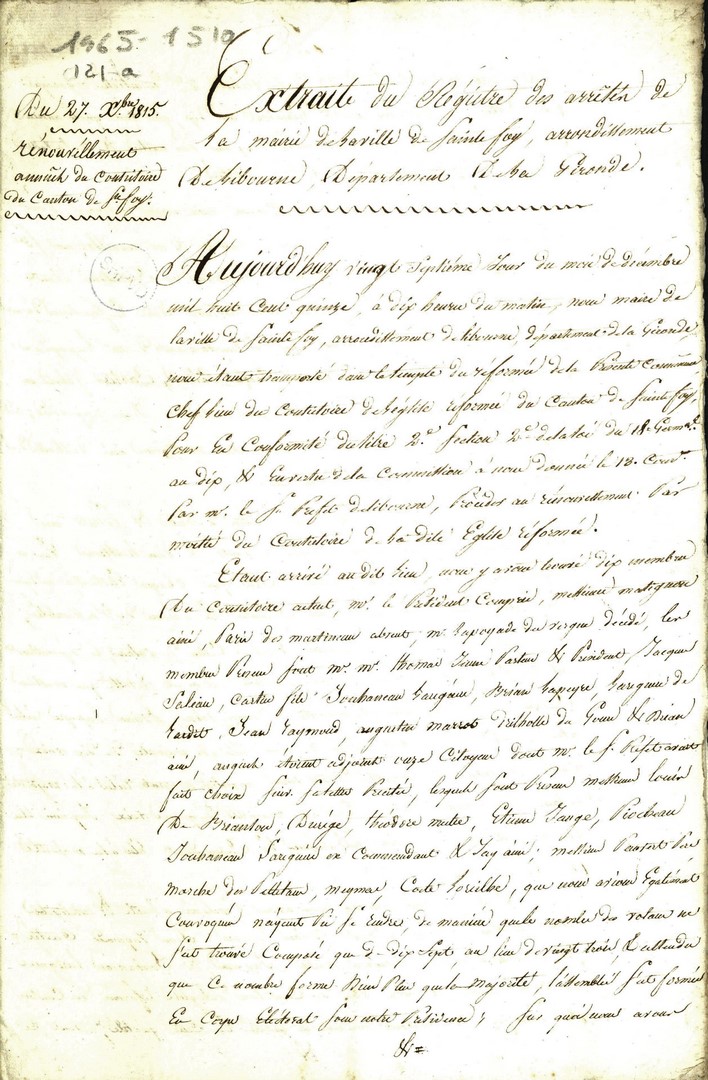 1965-1510
121-a
Du 27. Xbre 1815.
renouvellement
annuel du Consistoire
du Canton de Ste foy.
Extrait du Régistre des arrêtés de
la mairie de la ville de Sainte foy, arrondissement
De Libourne, Departement De la Gironde.
Aujourd'huy vingt Septième Jour du mois de décembre
mil huit Cent quinze, à dix heures du matin, nous maire de
la ville de Sainte foy, arrondissement de libourne, département de la Gironde,
nous étant transporté dans le temple des réformés de la Présente Commune
Chef lieu du Consistoire de l'église réformée du Canton de Sainte foy,
Pour En Conformité du titre 2e Section 2e de la loi du 18 Germal
an dix, & En vertu de la Commission à nous donnée le 18. Cour.
Par mr. le Sr. Préfet de libourne, Procéder au renouvellement Par
moitié du Consistoire de la dite Eglise réformée.
Etant arrivé au dit lieu, nous y avons trouvé dix membres
Du Consistoire actuel, mr. le Président Compris, messieurs matignon
ainé, Paris des martineau absent, mr. Lapoyade du resque décédé, les
membres Présens Sont mr. mr. thomas Pasteur & Président, Jacques
fils Jouhanneau Brian Lapeyre, Lareguere de
Jean Raymond, augustin marrot & Brian
ainé, auxquels étoient adjoints onze Citoyens dont mr. le Sr. Préfet avait
fait choix Sur Sa lettre Précitée, lesquels Sont Présens messieurs louis
De Briançon, Durége, théodore Etienne Jange, Rocheau
Jouhanneau Lareguere ex Commandant & Jay ainé; messieurs Paufert Père
marche des Pelletan, meymac, Coste que nous avions Egalement
Convoqués n'ayent Pu Se rendre, de manière que le nombre des votans ne
S'est trouvé Composé que de dix Sept au lieu de vingt trois, & attendu
que Ce nombre forme Bien Plus que la majorité, l'assemblée S'est formée
En Corps Electoral Sous notre Présidence; Sur quoi nous avons
&=